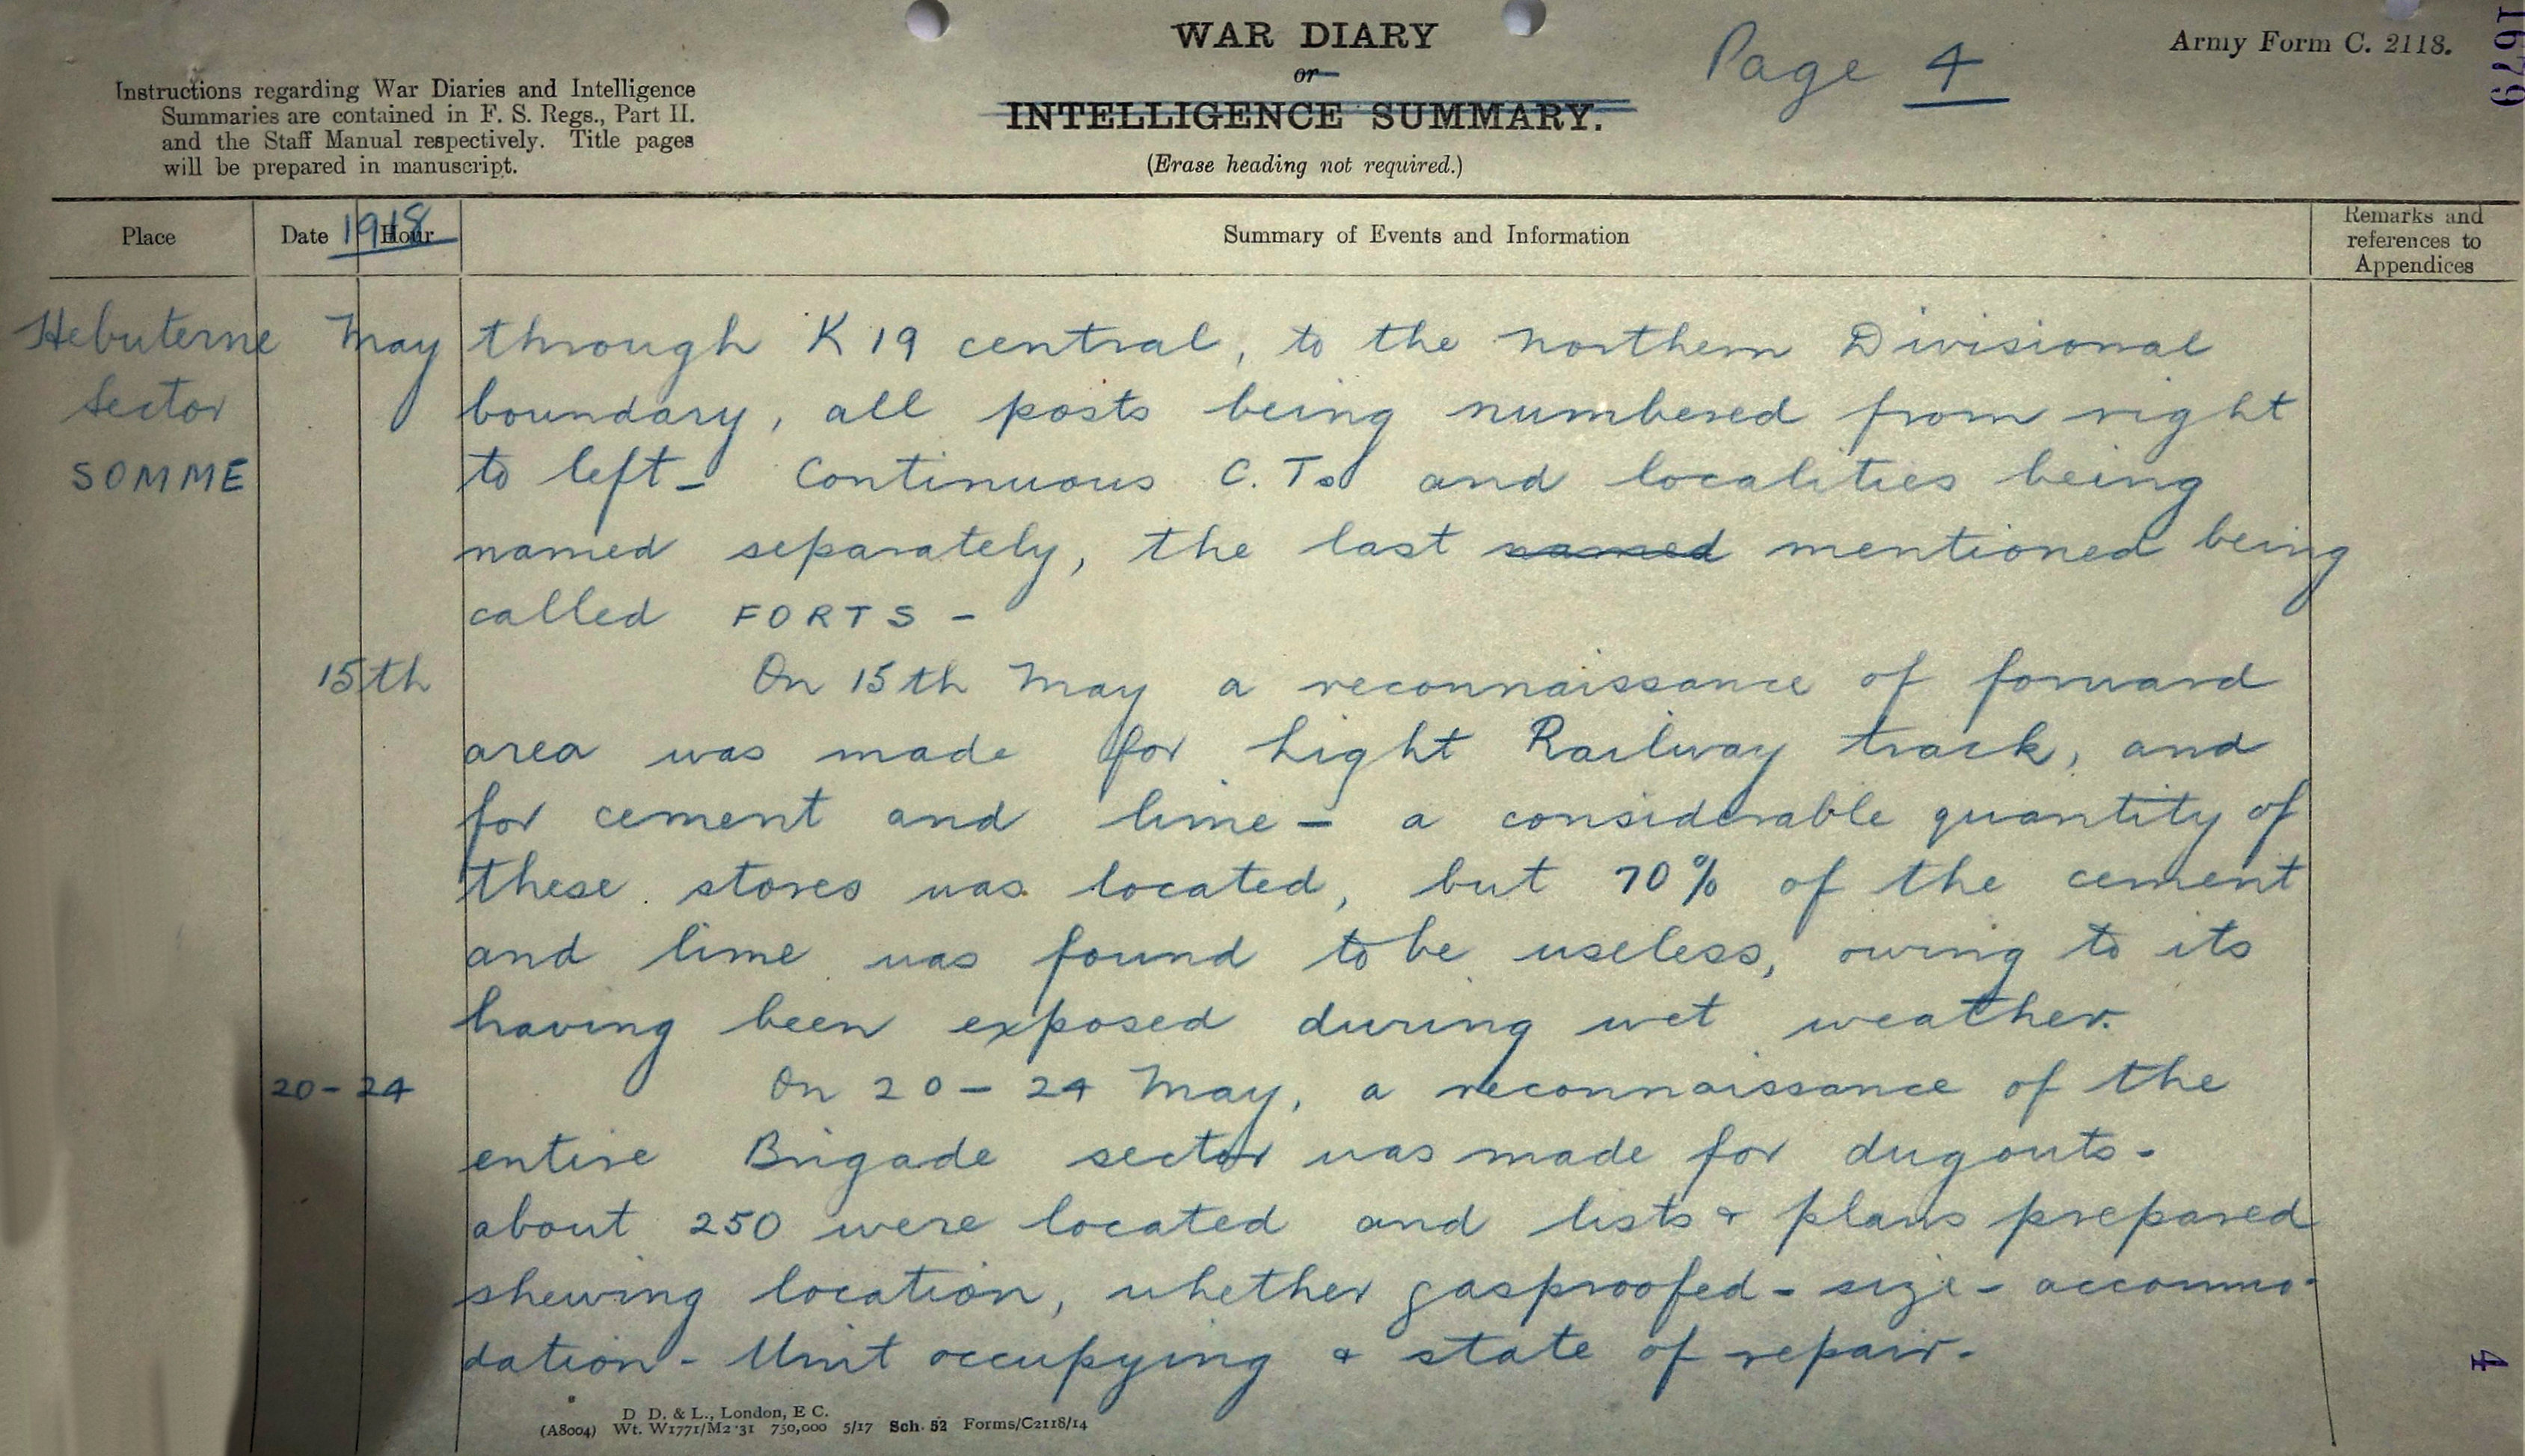 WAR DIARY
or
INTELLIGENCE SUMMARY.
(Erase heading not required.)
Page 4
Army Form C. 2118.
1679
Instructions regarding War Diaries and Intelligence
Summaries are contained in F. S. Regs., Part II.
and the Staff Manual respectively. Title pages
will be prepared in manuscript.
Place
Date 1918 Hour
Summary of Events and Information
Remarks and
references to
Appendices
Hebuterne May through K 19 central, to the northern Divisional
Sector boundary, all posts being numbered from right
SOMME to left – Continuous C. Ts and localities being
named separately, the last named mentioned being
called FORTS –
15th On 15th May a reconnaissance of forward
area was made for Light Railway track, and
for cement and lime – a considerable quantity of
these stores was located, but 70% of the cement
and lime was found to be useless, owing to its
having been exposed during wet weather.
20 – 24 On 20 – 24 May, a reconnaissance of the
entire Brigade sector was made for dugouts -
about 250 were located and lists & plans prepared
shewing location, whether gasproofed - size - accommo-
dation - Unit occupying & state of repair -
4
D. D. & L., London, E C.
(A8004) Wt. W1771/M2 31 750,000 5/17 Sch. 52 Forms/C2118/14